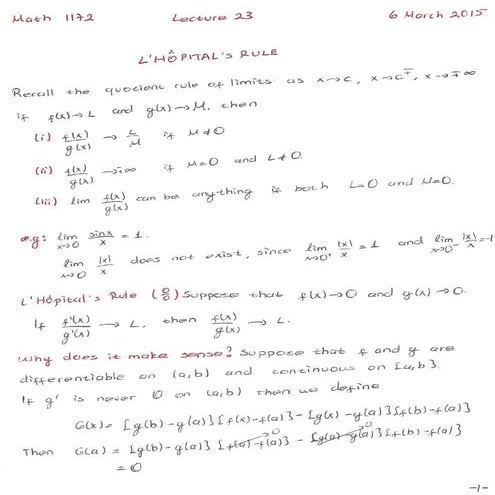 Math 1172 Lecture 23 6 March 2015
L'HÔPITAL'S RULE
Recall the quotient rule of limits: as x→c, x→c∓, x→∓∞
if f(x)→L and g(x)→M, then
(i) f(x)/g(x) → L/M if M≠0
(ii) f(x)/g(x) → ∓∞ if M=0 and L≠0.
(iii) lim f(x)/g(x) can be anything if both L=0 and M=0.
e.g: lim x→0 sinx/x = 1.
lim x→0 |x|/x does not exist, since lim x→0⁺ |x|/x = 1 and lim x→0⁻ |x|/x = -1
L'Hôpital's Rule (0/0) Suppose that f(x)→0 and g(x)→0.
If f'(x)/g'(x) → L, then f(x)/g(x) → L.
Why does it make sense? Suppose that f and g are
differentiable on (a,b) and continuous on [a,b].
If g' is never 0 on (a,b) then we define
G(x) = [g(b)-g(a)][f(x)-f(a)] - [g(x)-g(a)][f(b)-f(a)]
Then G(a) = [g(b)-g(a)][f(a)-f(a)]⁰ - [g(a)-g(a)]⁰[f(b)-f(a)]
= 0
-1-